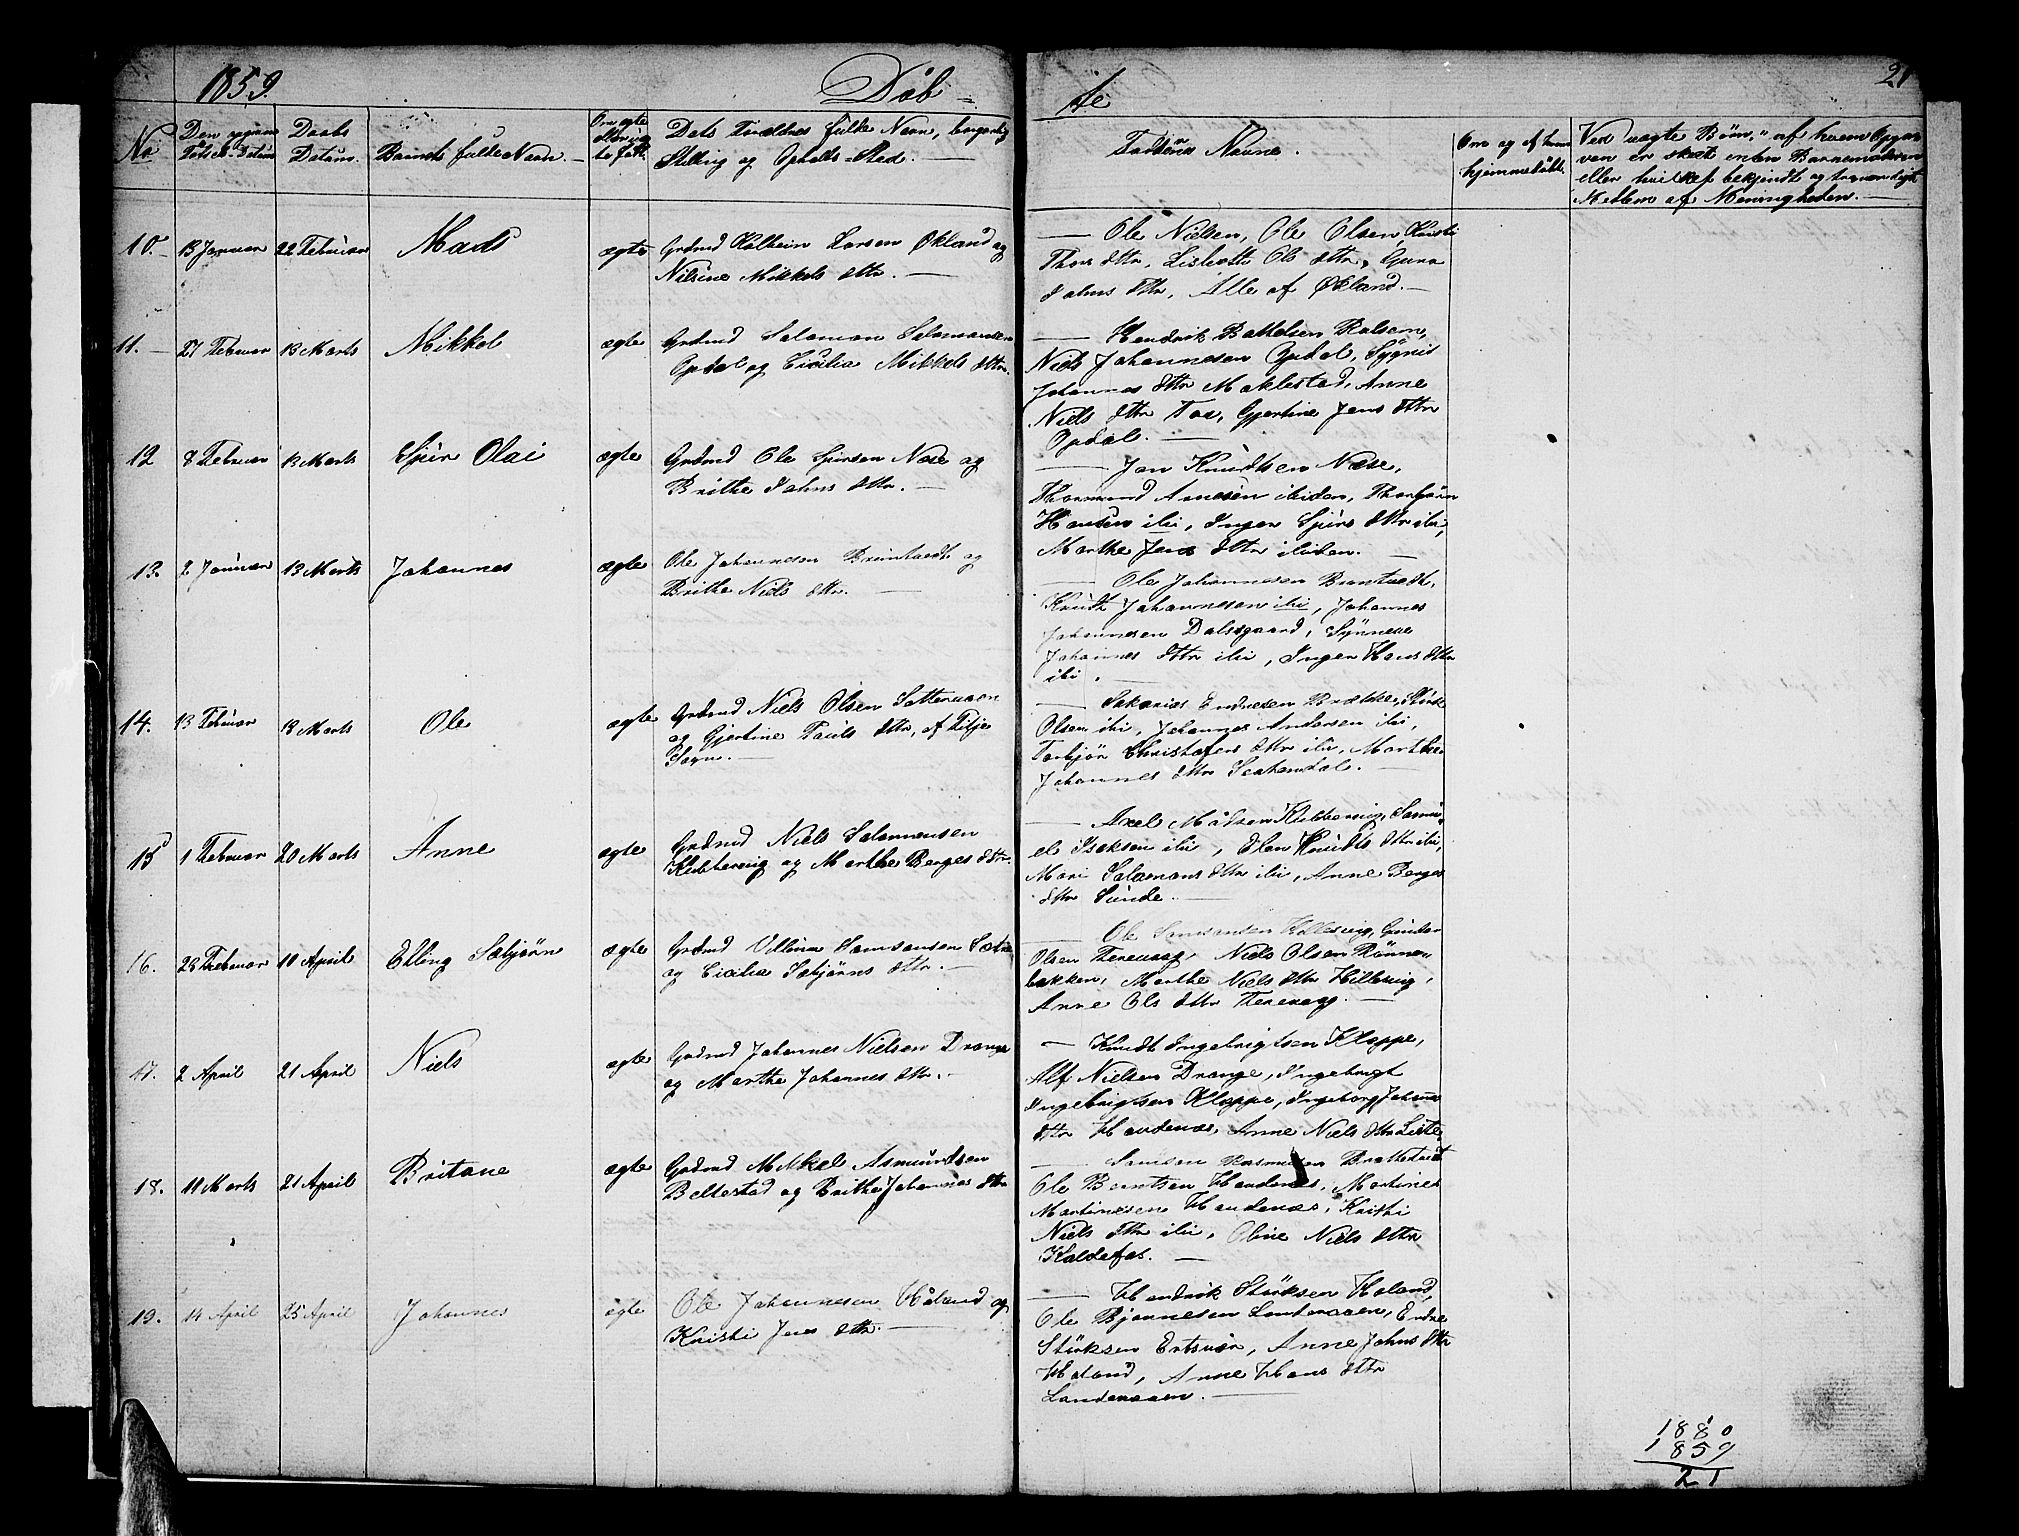 1859.
Døb-
te
21
No
Den opgivne
Fødsels Datum
Daabs
Datum.
Barnets fulde Navn.
Om ægte
eller uæg-
te født.
Dets Forældres fulde Navn, borgerlig
Stilling og Opholds-Sted.
Faddernes Navne.
Om og af hvem
hjemmedøbt.
Ved uægte Børn, af hvem Opgi-
ven er skeet enten Barnemoderen
eller hvilket bekjendt og troværdigt
Medlem af Menigheden.
10. 13 Januar 22 Februar Mads ægte Grdmd Larsen Økland og
Nilsine Mikkels dttr.
Ole Nielsen, Ole Olsen, Kristi
Thors dttr, Lisbeth Ols dttr, Guro
Johns dttr, Alle af Økland.
11. 27 Februar 13 Marts Mikkel ægte Grdmd Salamon Salamonsen
Opdal og Cicilia Mikkels dttr.
Hendrik Battelsen
Niels Johannesen Opdal, Sygni
Johannes dttr Maklestad, Anne
Niels dttr Toa, Gjertine Jens dttr
Opdal.
12 8 Februar 13 Marts Spir Olai ægte Grdmd Ole Spirsen Nese og
Brithe Johns dttr.
Jon Knudtsen Næse,
Thormund Arnesen ibiden, Thorbjørn
Hansen ibi, Inger Spirs dttr ibi,
Marthe Jens dttr ibiden.
13. 2 Januar 13 Marts Johannes ægte Ole Johannesen Bruntvedt og
Brithe Niels dttr.
Ole Johannesen Bruntvedt,
Knudt Johannesen ibi, Johannes
Johannesen Dalsgaard, Synneva
Johannes dttr ibi, Inger Hans dttr
ibi.
14. 13 Februar 13 Marts Ole ægte Grdmd Niels Olsen
og Gjertine Pauls dttr, af Fitje
Sogn.
Sakarias Endresen Brække, Størk
Olsen ibi, Johannes Andersen ibi,
Torbjør Christofers dttr ibi, Marthe
Johannes dttr
15 1 Februar 20 Marts Anne ægte Grdmd Niels Salamonsen
Klubbervig og Marthe Berges dttr.
Axel Madsen Klubbervig, Samu-
el Isaksen ibi, Elen Knudts dttr ibi,
Mari Salamons dttr ibi, Anne Berges
dttr Sunde.
16. 26 Februar 10 April Elling Sæbjørn ægte Grdmd Villum Samsonsen
og Cicilia Sæbjørns dttr.
Ole Samsonsen Hillesvig, Gunder
Olsen Terevaag, Niels Olsen Rønne-
bakken, Marthe Niels dttr Hillesvig,
Anne Ols dttr Terevaag.
17. 2 April 21 April Niels ægte Grdmd Johannes Nielsen Drange
og Marthe Johannes dttr.
Knudt Ingebrigtsen Kloppe,
Alf Nielsen Drange, Ingebrigt
Ingebrigtsen Kloppe, Ingeborg Johannes
dttr Haudenæs, Anne Niels dttr
18. 11 Marts 21 April Britane ægte Grdmd Mikkel Asmundsen
Beltestad og Brithe Johannes dttr
Samson Rasmusen
Ole Berntsen Haudenæs, Martines
Martinesen Haudenæs, Kristi
Niels dttr ibi, Oline Niels dttr
Kaldefos.
19. 14 April 25 April Johannes ægte Ole Johannesen Håland og
Kristi Jens dttr.
Hendrik Størksen Håland,
Ole Bjønnesen Landeraaen, Endre
Størksen Ertsvær, Anne Johns dttr
Håland, Anne Hans dttr
Landeraaen.
1880
1859
21